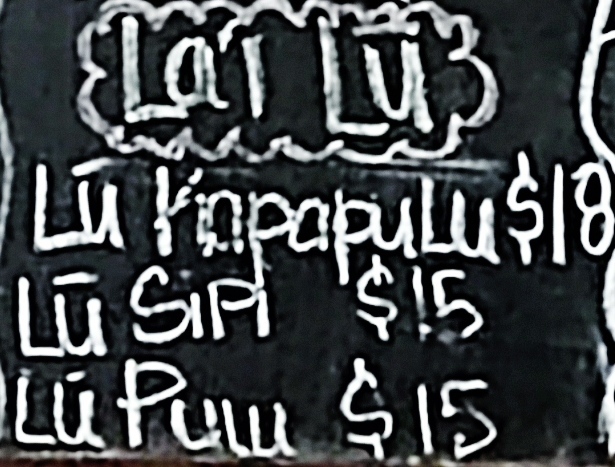 La'i Lū
Lū Kapapulu $18
Lū Sipi $15
Lū Pulu $15